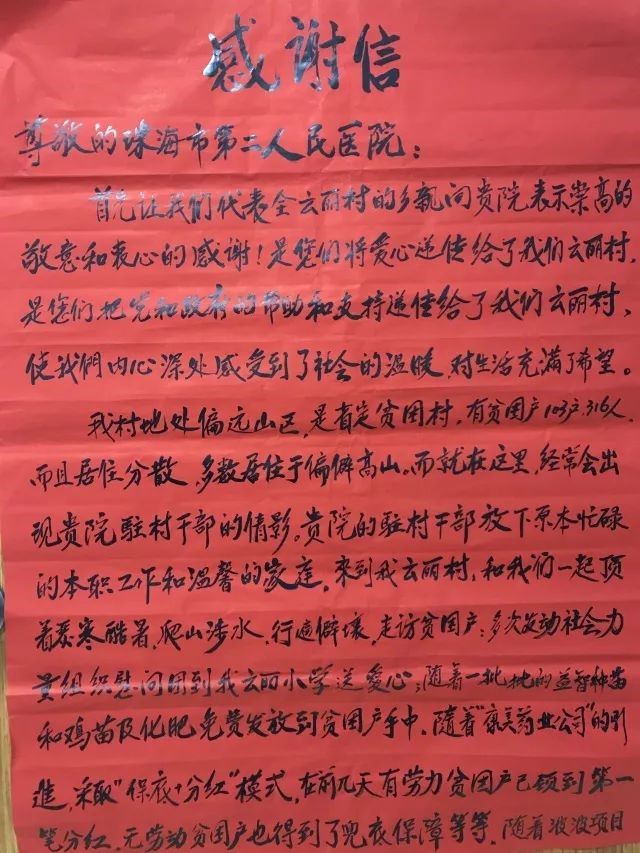 感谢信
尊敬的珠海市第二人民医院：
首先让我们代表全云丽村的乡亲向贵院表示崇高的
敬意和衷心的感谢！是您们将爱心递传给了我们云丽村，
是您们把党和政府的帮助和支持递传给了我们云丽村、
使我們内心深处感受到了社会的温暖，对生活充满了希望。
我村地处偏远山区，是省定贫困村，有贫困户103户316人，
而且居住分散，多数居住于偏僻高山。而就在这里，经常会出
现贵院駐村干部的倩影。贵院的駐村干部放下原本忙碌
的本职工作和温馨的家庭，来到我云丽村，和我们一起顶
着严寒酷暑，爬山涉水，行遍僻壤，走访贫困户；多次发动社会力
量组织慰问团到我云丽小学送爱心；随着一批批的益智种苗
和鸡苗及化肥免费发放到贫困户手中，随着"康美药业公司"的引
進，采取"保底+分红"模式，在前几天有劳力贫困户已领到第一
笔分红，无劳动贫困户也得到了兜底保障等等，随着波波项目